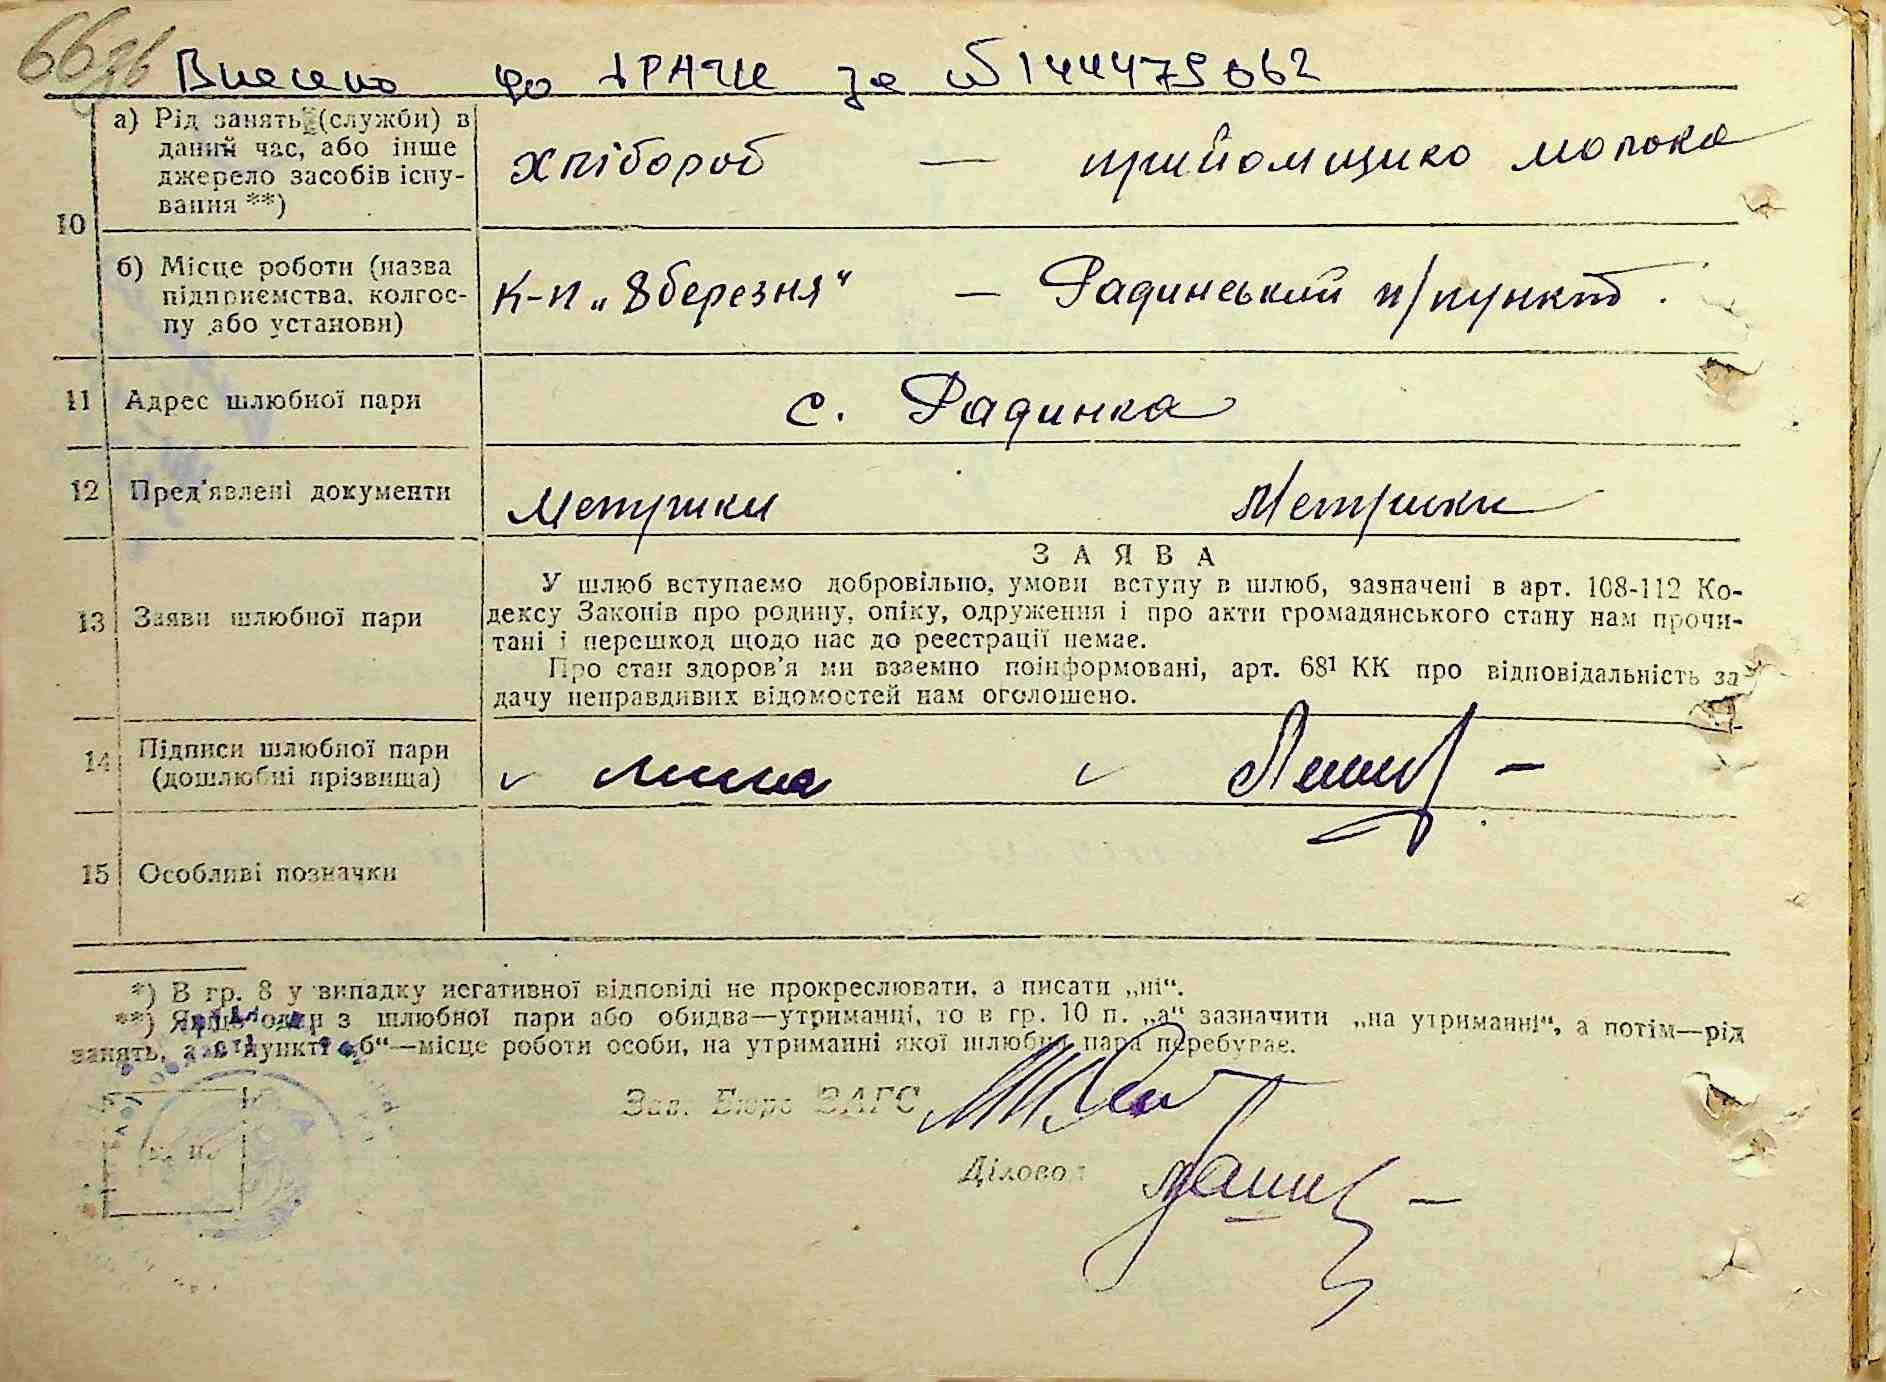 66зв
Внесено до ДРАЦС за № 144475062
10
а) Рід занять (служби) в
даний час, або інше
джерело засобів існу-
вання **)
хлібороб — прийомщико молока
б) Місце роботи (назва
підприємства, колгос-
пу або установи)
К-п „8 березня“ — Радинський п/пункт.
11 Адрес шлюбної пари
с. Радинка
12 Пред'явлені документи
Метрики Метрики
ЗАЯВА
13 Заяви шлюбної пари
У шлюб вступаємо добровільно, умови вступу в шлюб, зазначені в арт. 108-112 Ко-
дексу Законів про родину, опіку, одруження і про акти громадянського стану нам прочи-
тані і перешкод щодо нас до реєстрації немає.
Про стан здоров'я ми взаємно поінформовані, арт. 68¹ КК про відповідальність за
дачу неправдивих відомостей нам оголошено.
14 Підписи шлюбної пари
(дошлюбні прізвища)
15 Особливі позначки
*) В гр. 8 у випадку негативної відповіді не прокреслювати, а писати „ні“.
**) Якщо один з шлюбної пари або обидва—утриманці, то в гр. 10 п. „а“ зазначити „на утриманні“, а потім—рід
занять, а в пункті „б“—місце роботи особи, на утриманні якої шлюбна пара перебуває.
Зав. Бюро ЗАГС
Діловод